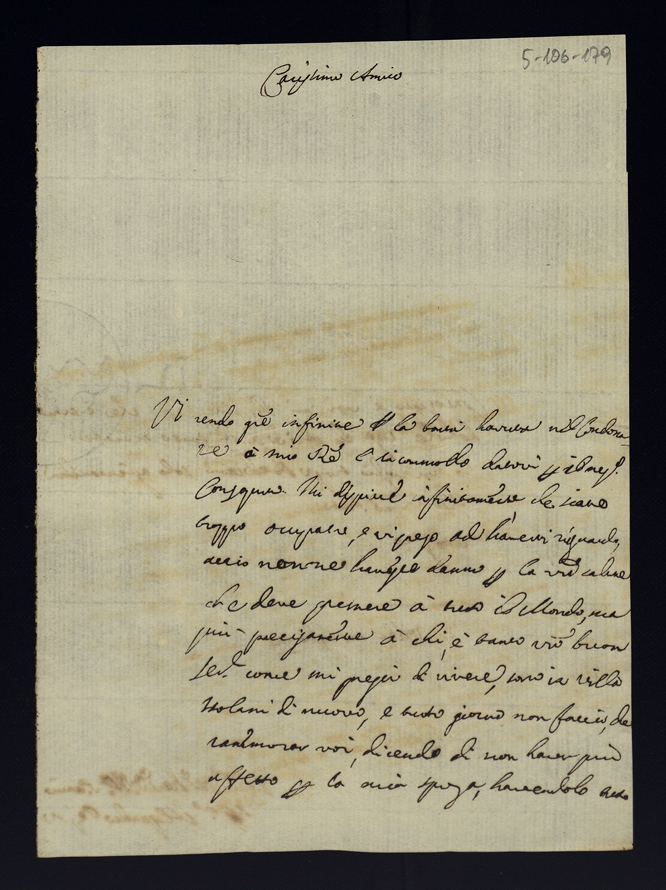 5-106-179
Carissimo Amico
Vi rendo gre infinite p la bontà havuta nel
re à mio
infinitamente che siate
troppo occupato, e vi prego ad havervi riguardo,
acciò non ne danno p la vra salute
che deve premere à tutto il Mondo, ma
più precisamente à chi, è tanto vro buon
Ser. come mi pregio di vivere, sono in villa
Isolani di nuovo, e tutto giorno non faccio, che
voi, dicendo di non haver più
affetto p la mia spoza, havendolo tutto